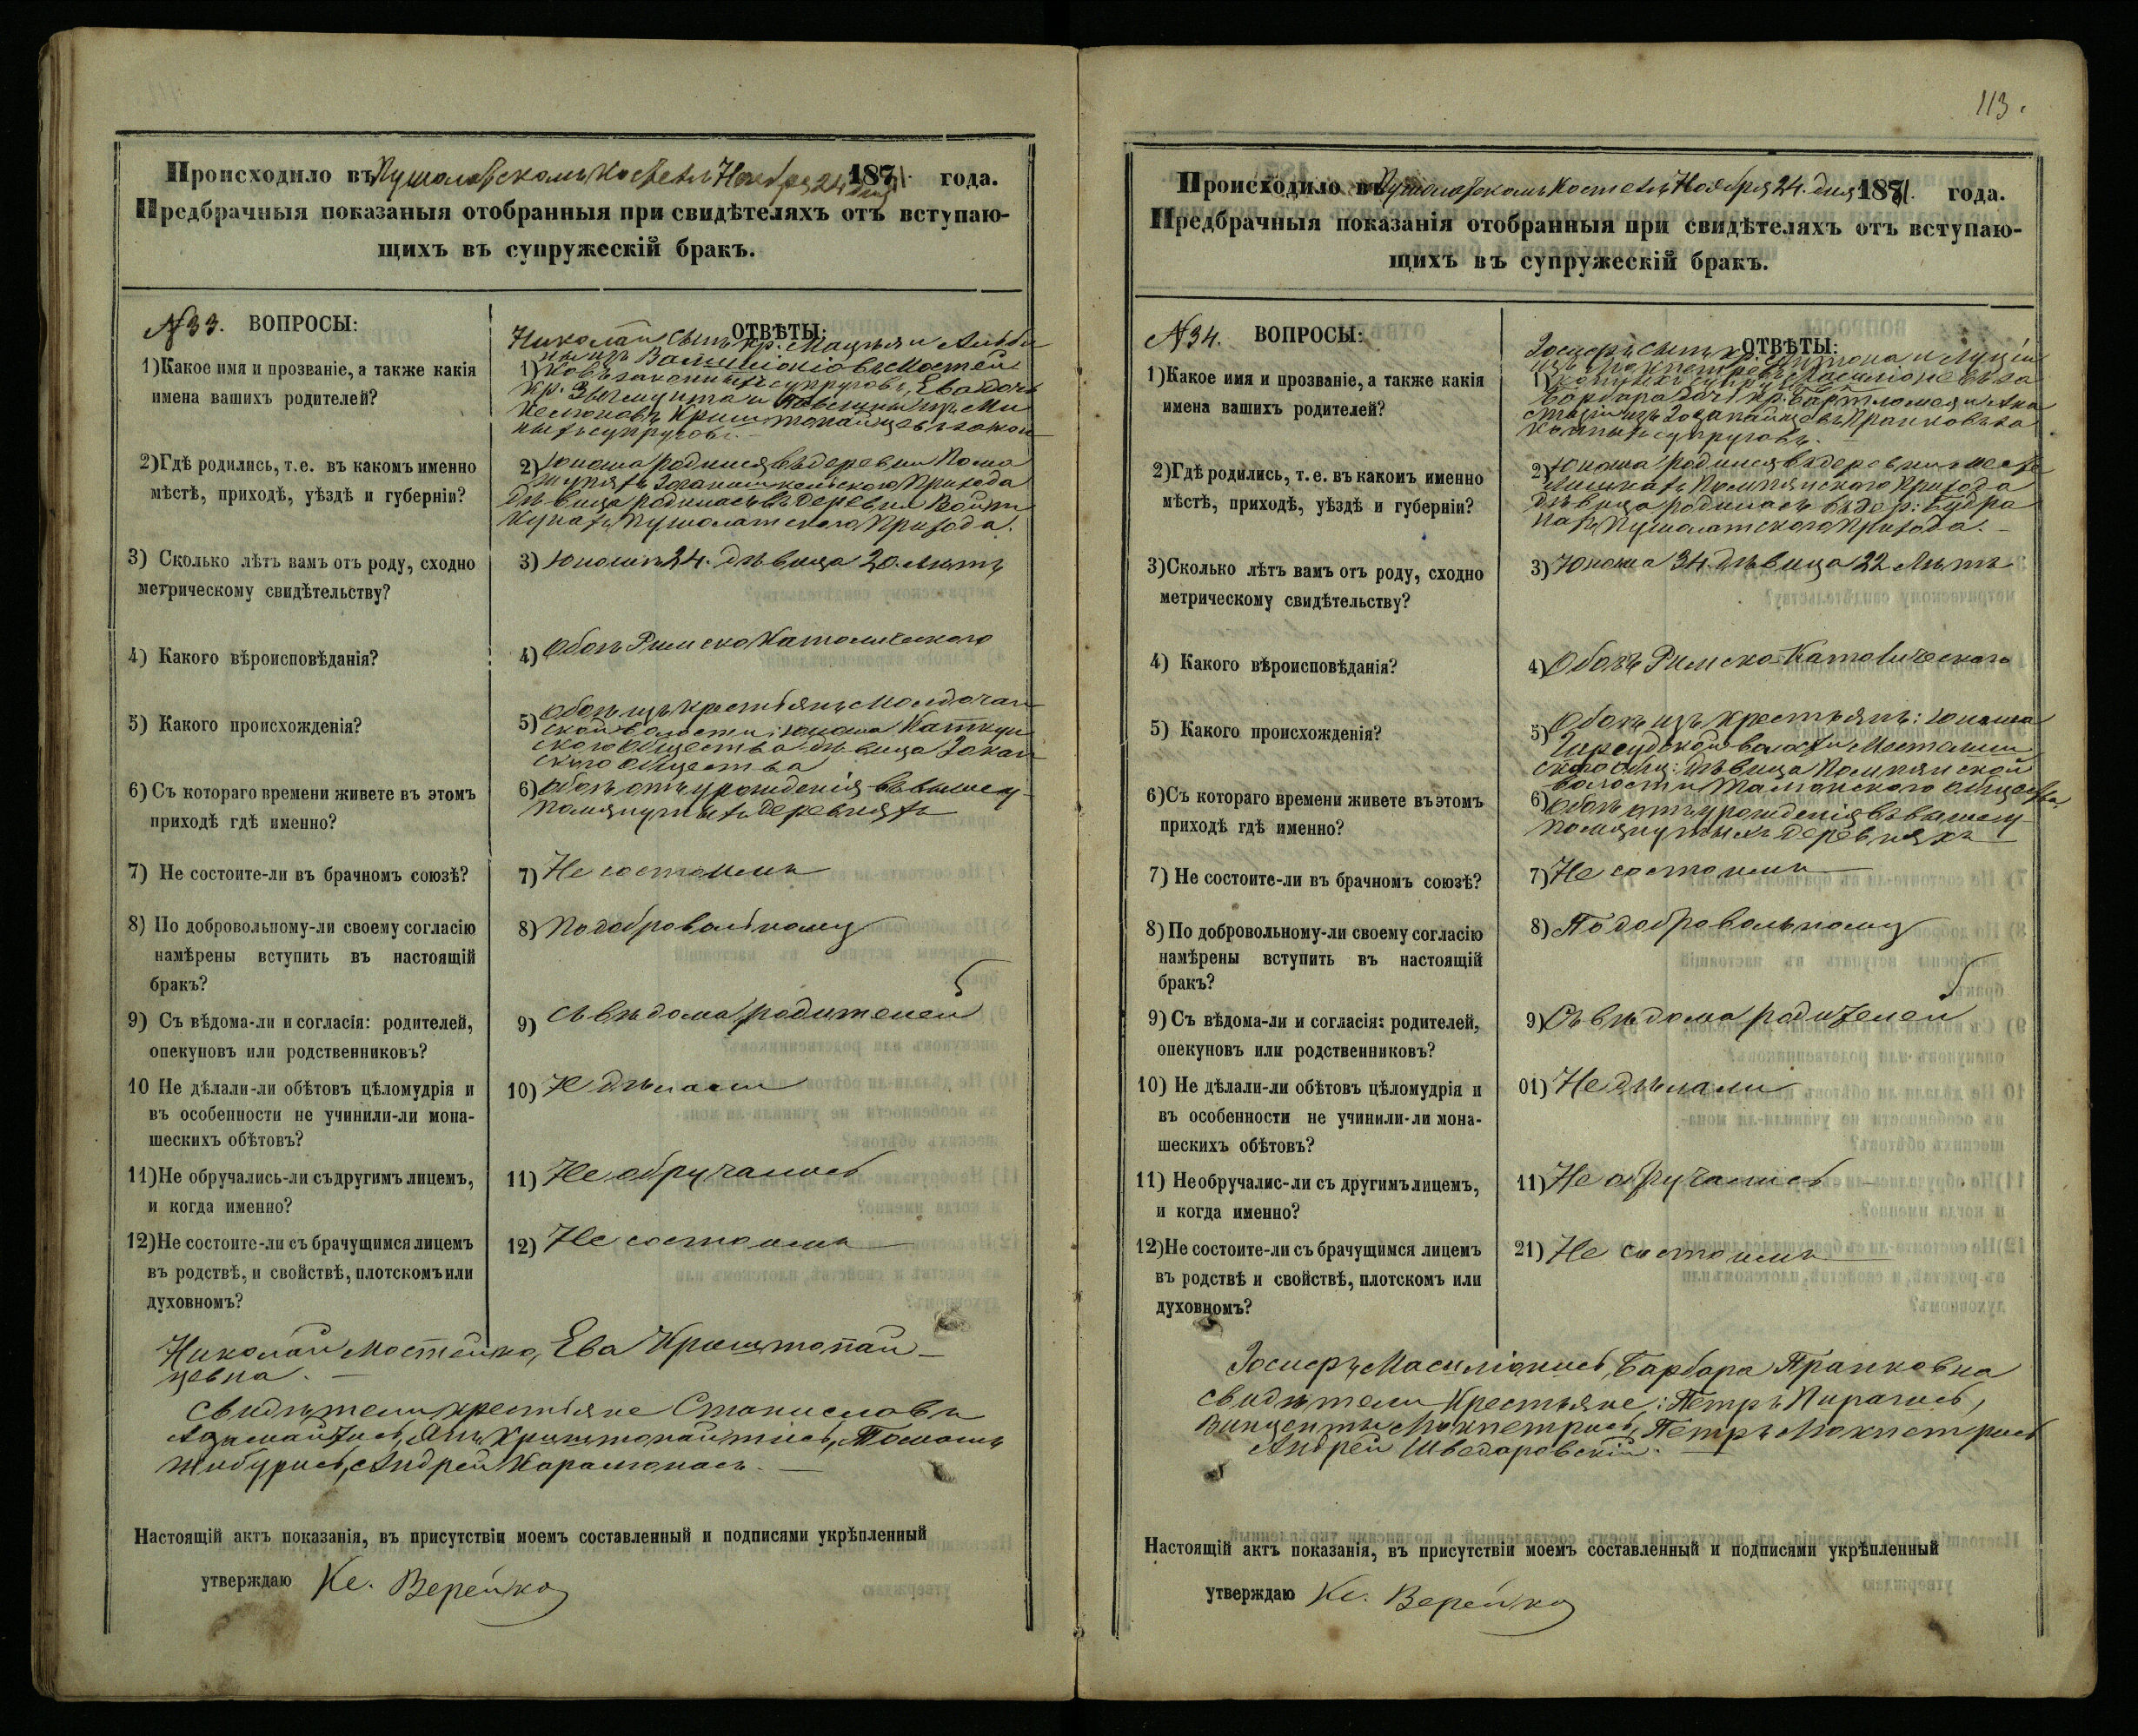 Происходило въ Пушолотскомъ Костелѣ Ноября 24 дня 1871 года.
Предбрачныя показаныя отобранныя при свидѣтеляхъ отъ вступаю-
щихъ въ супружескій бракъ.
№33. ВОПРОСЫ:
1) Какое имя и прозваніе, а также какія
имена вашихъ родителей?
2) Гдѣ родились, т. е. въ какомъ именно
мѣстѣ, приходѣ, уѣздѣ и губерніи?
3) Сколько лѣтъ вамъ отъ роду, сходно
метрическому свидѣтельству?
4) Какого вѣроисповѣданія?
5) Какого происхожденія?
6) Съ котораго времени живете въ этомъ
приходѣ гдѣ именно?
7) Не состоите-ли въ брачномъ союзѣ?
8) По добровольному-ли своему согласію
намѣрены вступить въ настоящій
бракъ?
9) Съ вѣдома-ли и согласія: родителей,
опекуновъ или родственниковъ?
10 Не дѣлали-ли обѣтовъ цѣломудрія и
въ особенности не учинили-ли мона-
шескихъ обѣтовъ?
11) Не обручались-ли съ другимъ лицемъ,
и когда именно?
12) Не состоите-ли съ брачущимся лицемъ
въ родствѣ, и свойствѣ, плотскомъ или
духовномъ?
ОТВѢТЫ:
Николай сынъ кр. Мацѣя и Альби
ны изъ Мостей
1) ковъ законныхъ супруговъ, Ева дочь
кр. Зыгмунта и
Криштопайцевъ закон
ныхъ супруговъ. —
2) Юноша родился въ деревни
прихода
дѣвица родилась въ деревни Войт
кунахъ Пушолатского прихода.
3) Юноши 24. дѣвица 20. лѣтъ
4) Обоъ Римско Католического
5) Обоъ изъ крестьянъ
ской волости: юноша
ского общества дѣвица
ского общества
6) Обоъ отъ урожденія въ выше
помянутыхъ деревняхъ
7) Не состоимъ
8) По добровольному
9) Съ вѣдома родителей
10) Не дѣлали
11) Не обручались
12) Не состоимъ
Николай Мостейко, Ева Криштопай-
цевна. —
Свидѣтели крестьяне Станиславъ
Адамайтись, Янъ Криштопайтись, Томашъ
Жибурись, Андрей Карамонась. —
Настоящій актъ показанія, въ присутствіи моемъ составленный и подписями укрѣпленный
утверждаю Кс. Верейко
113.
Происходило въ Пушолотскомъ Костелѣ Ноября 24. дня 1871. года.
Предбрачныя показанія отобранныя при свидѣтеляхъ отъ вступаю-
щихъ въ супружескій бракъ.
№34. ВОПРОСЫ:
1) Какое имя и прозваніе, а также какія
имена вашихъ родителей?
2) Гдѣ родились, т. е. въ какомъ именно
мѣстѣ, приходѣ, уѣздѣ и губерніи?
3) Сколько лѣтъ вамъ отъ роду, сходно
метрическому свидѣтельству?
4) Какого вѣроисповѣданія?
5) Какого происхожденія?
6) Съ котораго времени живете въ этомъ
приходѣ гдѣ именно?
7) Не состоите-ли въ брачномъ союзѣ?
8) По добровольному-ли своему согласію
намѣрены вступить въ настоящій
бракъ?
9) Съ вѣдома-ли и согласія: родителей,
опекуновъ или родственниковъ?
10) Не дѣлали-ли обѣтовъ цѣломудрія и
въ особенности не учинили-ли мона-
шескихъ обѣтовъ?
11) Необручалис-ли съ другимъ лицемъ,
и когда именно?
12) Не состоите-ли съ брачущимся лицемъ
въ родствѣ и свойствѣ, плотскомъ или
духовномъ?
ОТВѢТЫ:
сынъ кр. Антона и Луціи
изъ Мокпетровъ Масилюневъ за
1) конныхъ супруговъ
Барбара дочь кр. Бартломея и Ана
стазіи изъ Пранковъ за
конныхъ супруговъ. —
2) Юноша родился въ деревни
Помпянского прихода
дѣвица родилась въ дер: Будра
нахъ Пушолатского прихода. —
3) Юноша 34. дѣвица 22 лѣтъ
4) Обоъ Римско-Католического
5) Обоъ изъ крестьянъ: юноша
Гирсудской волости
ского общ: дѣвица Помпянской
волости общества
6) Обоъ отъ урожденія въ выше
помянутыхъ деревняхъ
7) Не состоимъ
8) По добровольному
9) Съ вѣдома родителей
01) Не дѣлали
11) Не обручались
21) Не состоимъ
Масиліонись, Барбара Пранковна
свидѣтели Крестьяне: Петръ Пирагись,
Винцентый Мокпетрись, Петръ Мокпетрись
Андрей Шведаровскій.
Настоящій актъ показанія, въ присутствіи моемъ составленный и подписями укрѣпленный
утверждаю Кс. Верейко